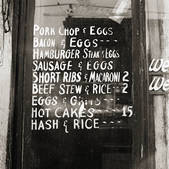 PORK CHOP & EGGS
BACON & EGGS ---
HAMBURGER STEAK & EGGS
SAUSAGE & EGGS
SHORT RIBS & MACARONI 2
BEEF STEW & RICE -- 2
EGGS &
HOT CAKES ---- 15
HASH & RICE ---
We
We